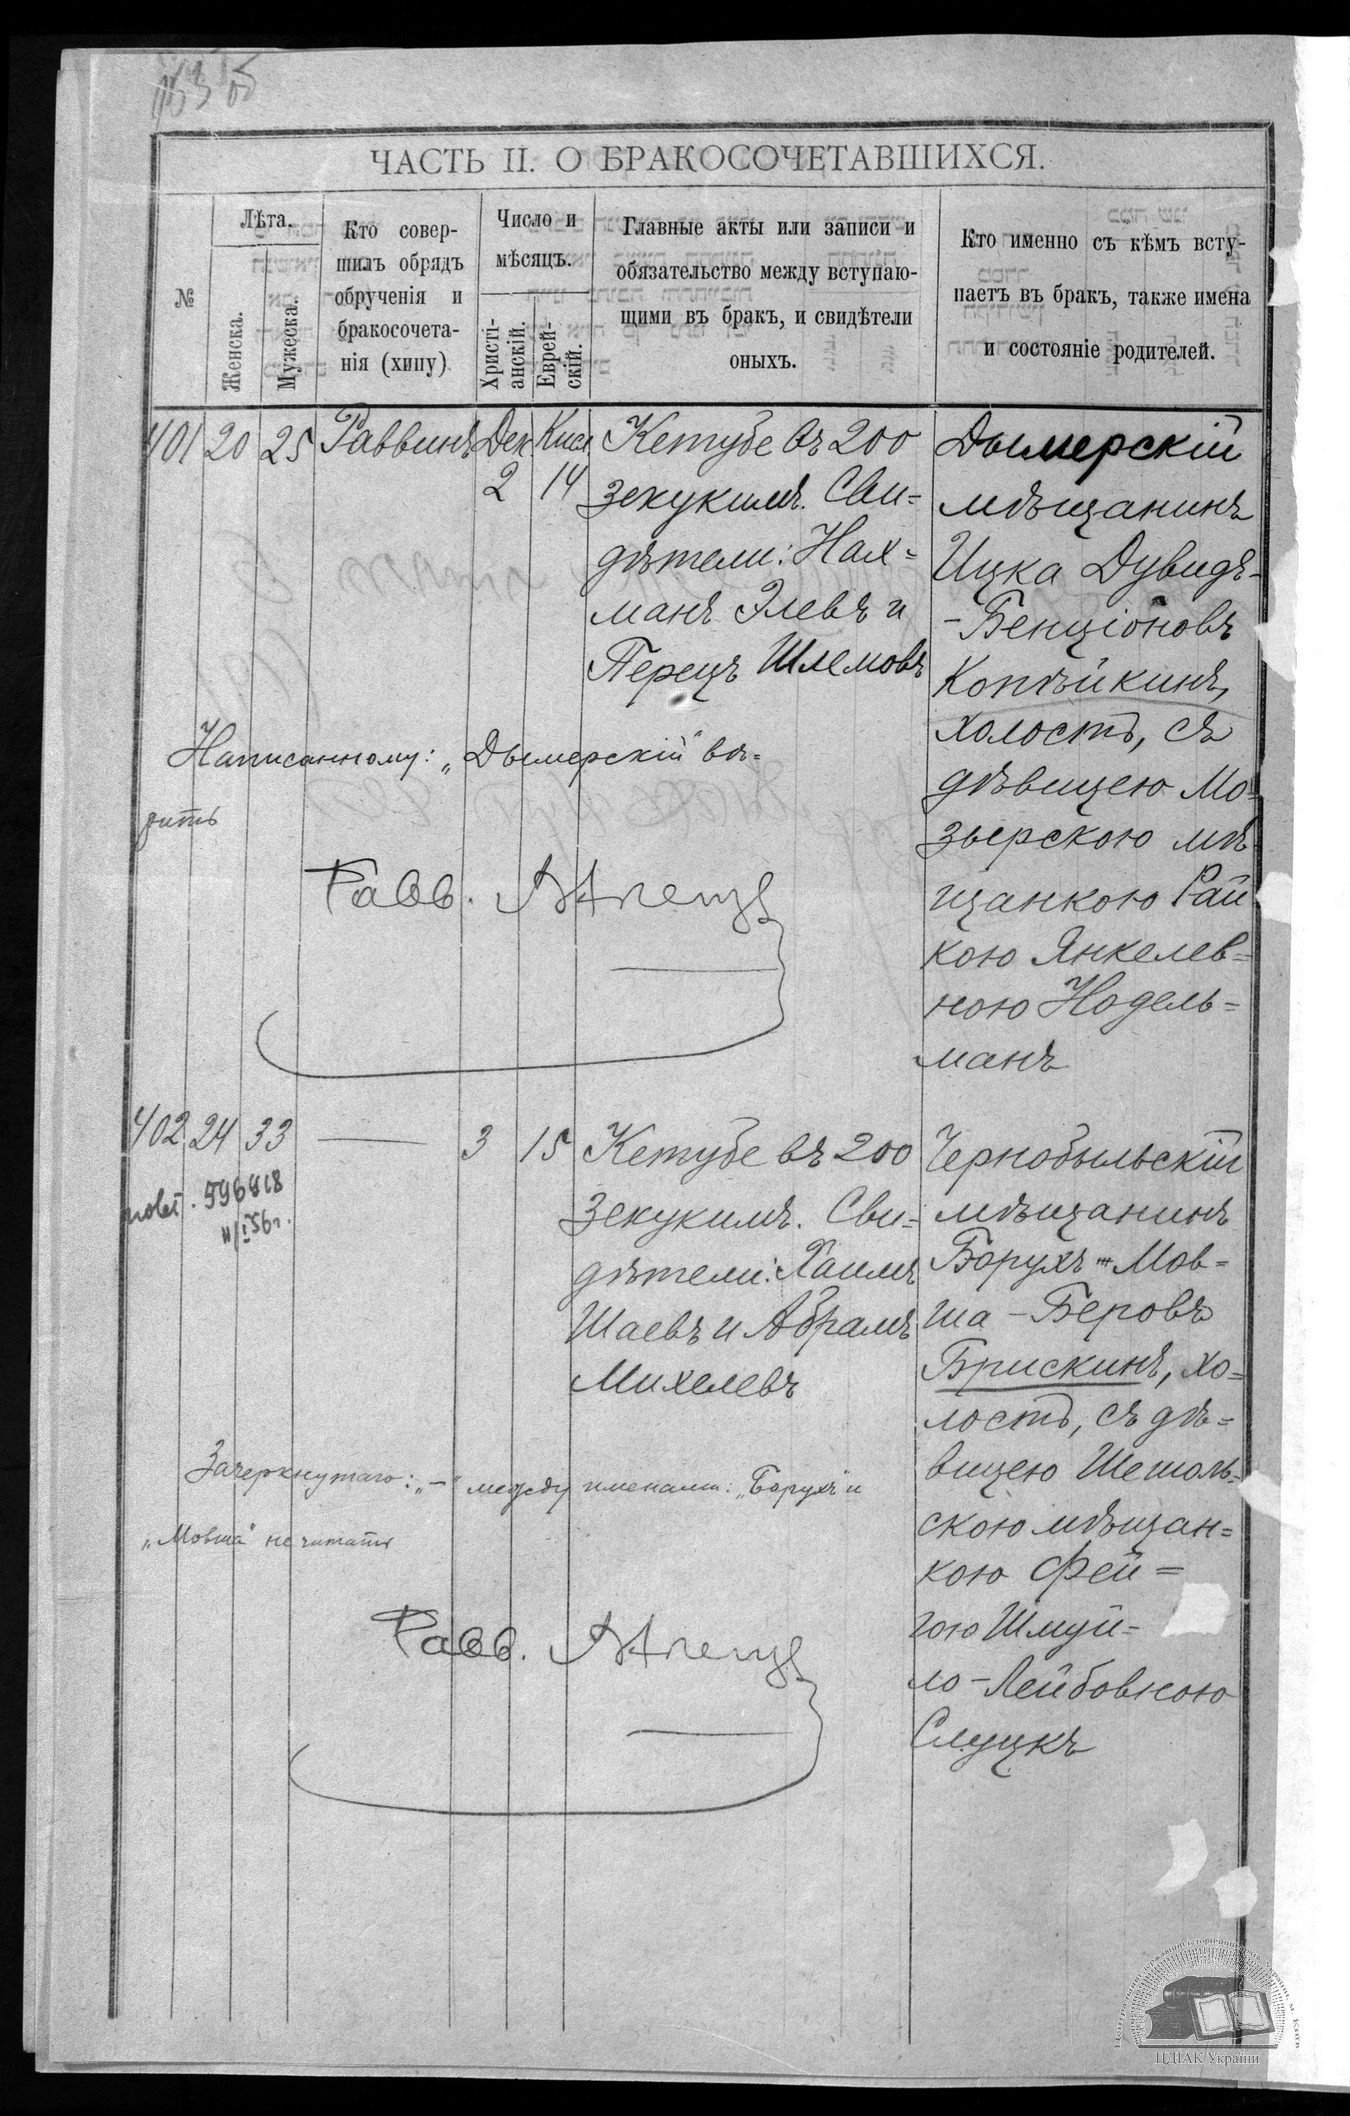 ЧАСТЬ II. О БРАКОСОЧЕТАВШИХСЯ.
№
Лѣта.
Женска.
Мужеска.
Кто совер-
шилъ обрядъ
обрученія и
бракосочета-
нія (хипу)
Число и
мѣсяцъ.
Христі-
анскій.
Еврей-
скій.
Главные акты или записи и
обязательство между вступаю-
щими въ бракъ, и свидѣтели
оныхъ.
Кто именно съ кѣмъ всту-
паетъ въ бракъ, также имена
и состояніе родителей.
401 20 25 Раввинъ Дек 2 Кисл 14
Кетубе въ 200
зекукимъ. Сви=
дѣтели: Нах=
манъ Элевъ и
Перецъ Шлемовъ
Дымерскій
мѣщанинъ
Ицка Дувидъ-
-Бенціоновъ
Копѣйкинъ,
холостъ, съ
дѣвицею Мо=
зырскою мѣ
щанкою Рай
кою Янкелев=
ною Нодель=
манъ
Написанному: „Дымерскій" вѣ=
рить
Равв.
402 24 33 — 3 15
596818
Кетубе въ 200
Зекукимъ. Сви=
дѣтели: Хаимъ
Шаевъ и Абрамъ
Михелевъ
Чернобыльскій
мѣщанинъ
Борухъ Мов=
ша-Беровъ
Брискинъ, хо=
лостъ, съ дѣ=
вицею
скою мѣщан=
кою Фей=
гою Шмуй=
ло-Лейбовною
Слуцкъ
Зачеркнутаго: „-" между именами: „Борухъ" и
„Мовша" не читать
Равв.
ЦДІАК України